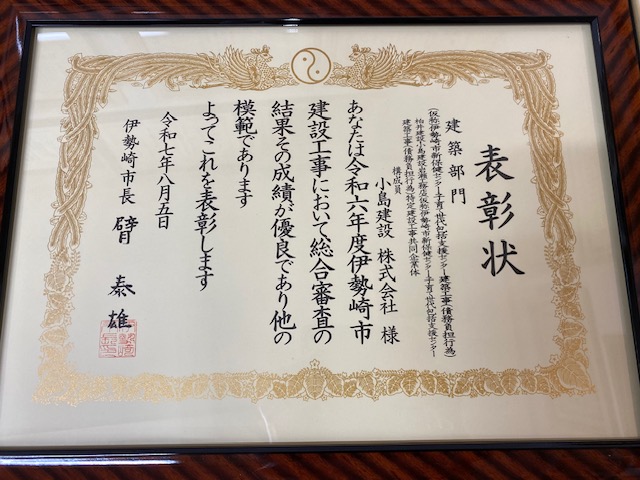 表彰状
建築部門
(仮称)伊勢崎市新保健センター・子育て世代包括支援センター建築工事(債務負担行為)
柏井建設・小島建設・岩瀬工務店(仮称)伊勢崎市新保健センター・子育て世代包括支援センター
建築工事(債務負担行為)特定建設工事共同企業体
構成員
小島建設 株式会社 様
あなたは令和六年度伊勢崎市
建設工事において総合審査の
結果その成績が優良であり他の
模範であります
よってこれを表彰します
令和七年八月五日
伊勢崎市長 臂 泰雄